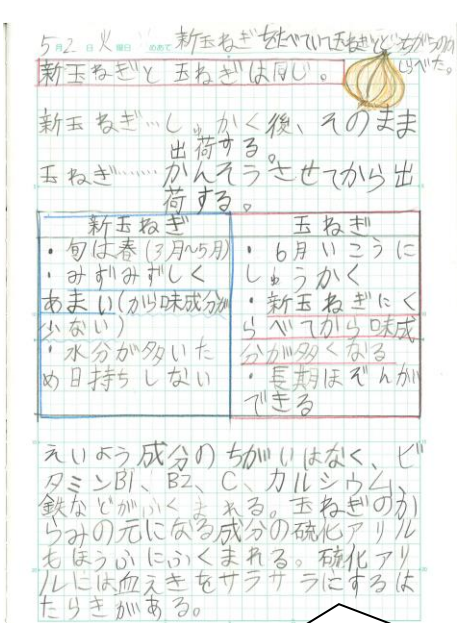 5月2日火曜日 めあて 新玉ねぎをたべていて玉ねぎとどうちがうのか
しらべた。
新玉ねぎと玉ねぎは同じ。
新玉ねぎ…しゅうかく後、そのまま
出荷する。
玉ねぎ……かんそうさせてから出
荷する。
新玉ねぎ
・旬は春(3月~5月)
・みずみずしく
あまい(から味成分が
少ない)
・水分が多いた
め日持ちしない
玉ねぎ
・6月いこうに
しゅうかく
・新玉ねぎにく
らべてから味成
分が多くなる
・長期ほぞんが
できる
えいよう成分のちがいはなく、ビ
タミンB1、B2、C、カルシウム、
鉄などがふくまれる。玉ねぎのか
らみの元になる成分の硫化アリル
もほうふにふくまれる。硫化アリ
ルには血えきをサラサラにするは
たらきがある。